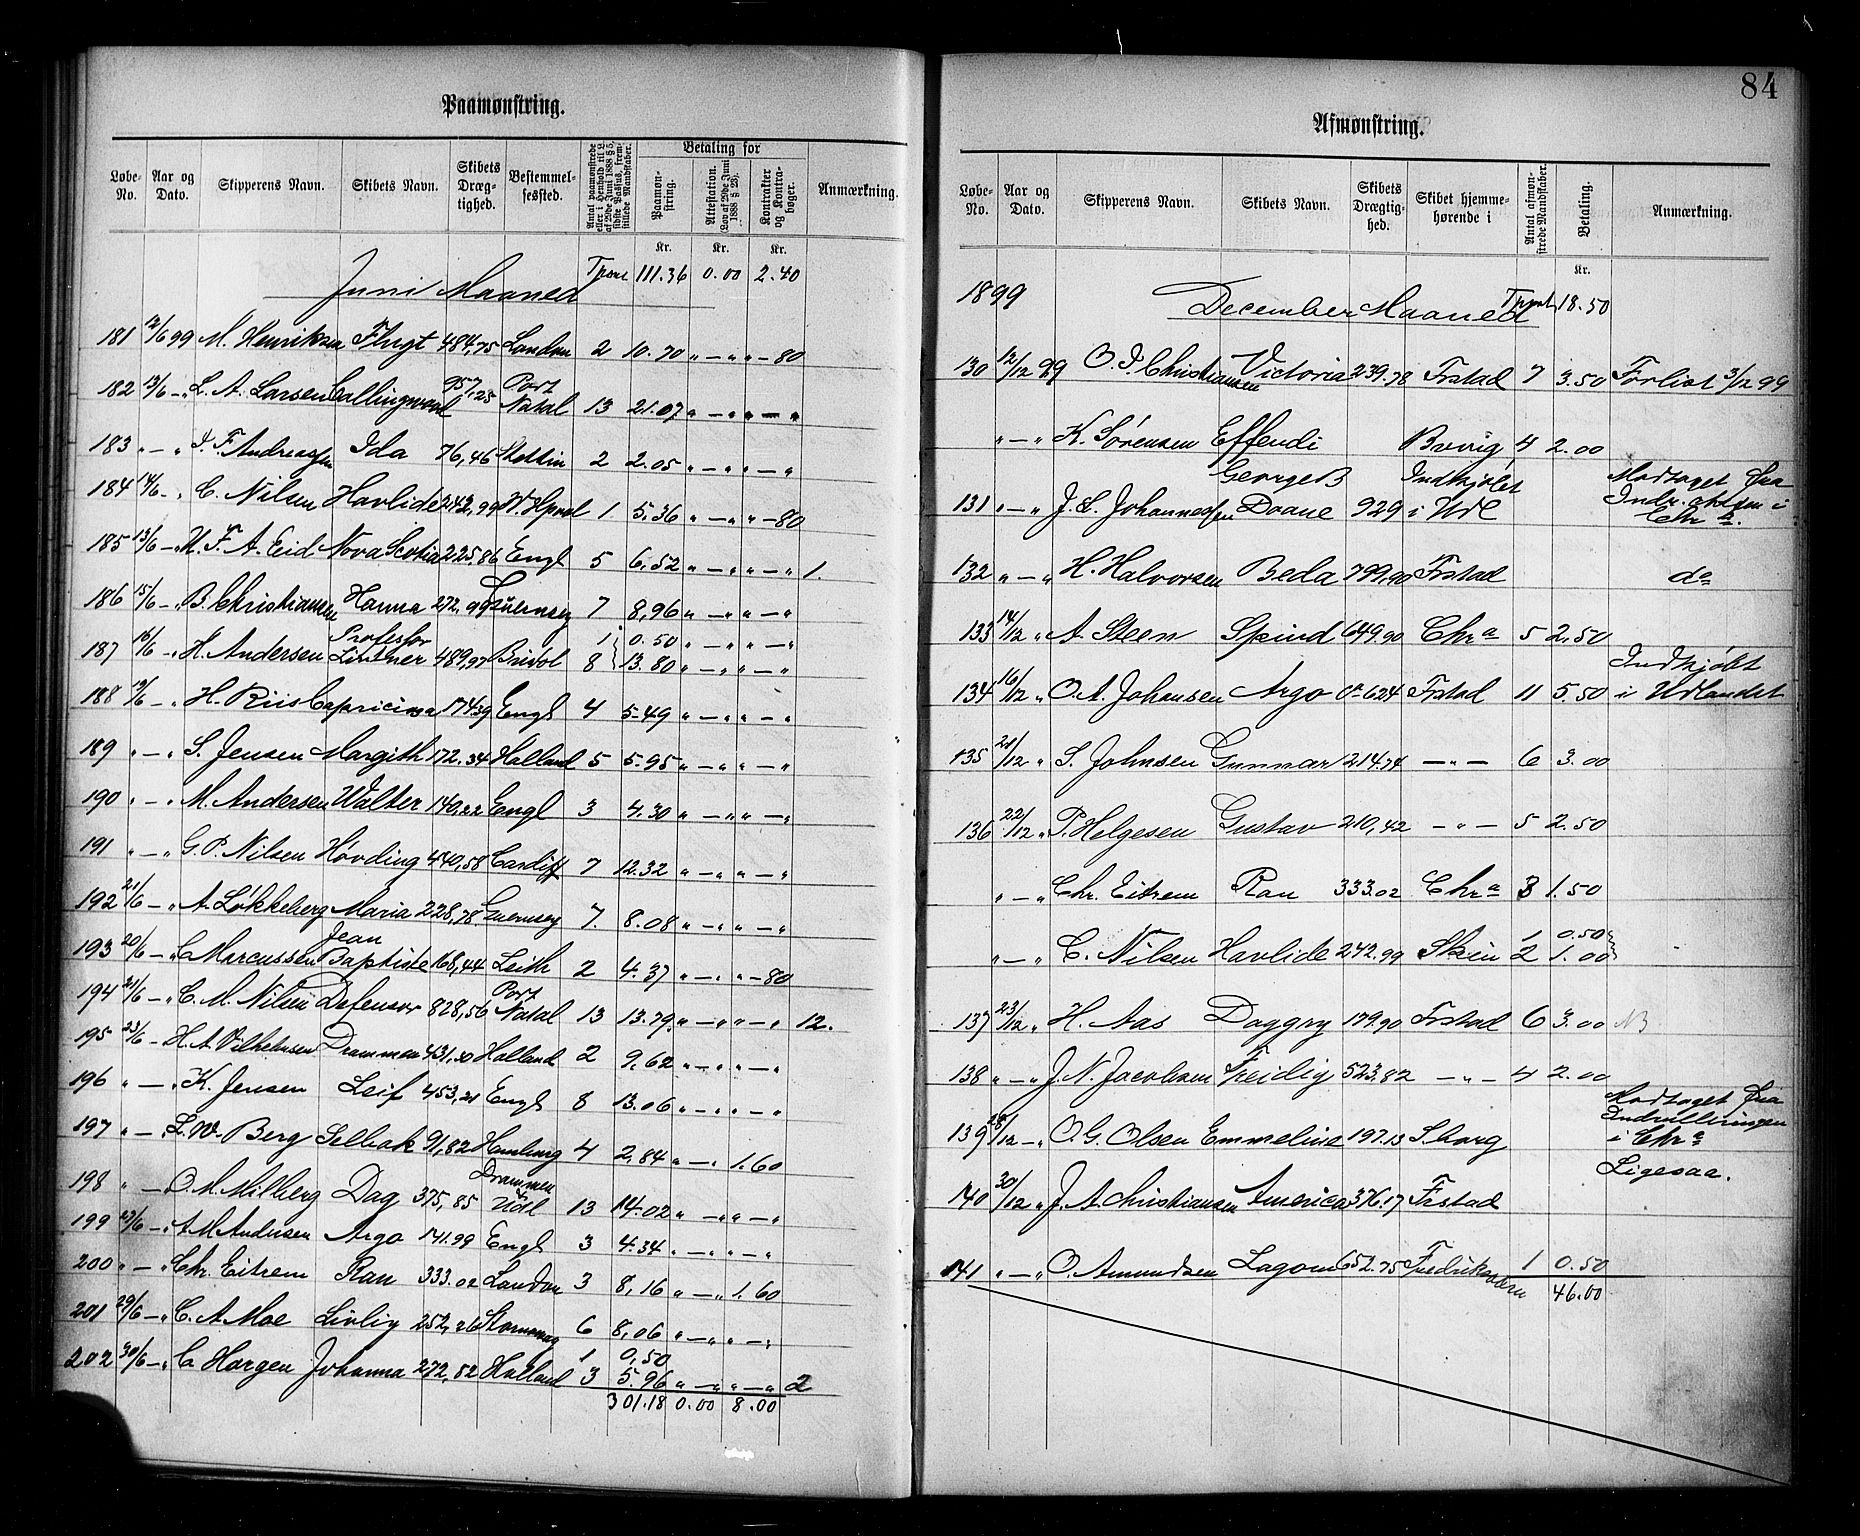 84
Paamønstring.
Løbe-No. Aar og Dato. Skipperens Navn. Skibets Navn. Skibets Dræg-tighed. Bestemmel-sessted. Antal paamønstrede eller i Henhold til L. af 29de Juni 1888 § 5, sidste Passus, frem-stillede Mandskaber. Betaling for Paamøn-string. Attestation. (Lov af 29de Juni 1888 § 23). Kontrakter og Kontra-bøger. Anmærkning.
Kr. Kr. Kr.
Juni Maaned Tport 111.36 0.00 2.40
181 12/6 99 M. Henriksen Flugt 484,75 London 2 10.70 " — " " — 80
182 13/6 — " L. A. Larsen Collingwood 957,28 Port Natal 13 21.07 " — " " — "
183 " — " J. F. Andreassen Ida 76,46 Stettin 2 2.05 " — " " — "
184 14/6 — " C. Nilsen Havlide 242,99 W. Hpool 1 5,36 " — " " — 80
185 13/6 — " F. A. Eid Nova Scotia 225,86 Engl 5 6,52 " — " " — " 1.
186 15/6 — " B. Christiansen Hanna 272,99 Guernsey 7 8,96 " — " " — "
187 16/6 — " H. Andersen Profesfor Lintner 489,97 Bristol 1 0.50 " — " " — "
8 13.80 " — " " — "
188 19/6 — " H. Riis Capricina 174.39 Engl 4 5.49 " — " " — "
189 " — " S. Jensen Margith 172.34 Holland 5 5.95 " — " " — "
190 " — " M. Andersen Walter 140,22 Engl 3 4.30 " — " " — "
191 " — " G. P. Nilsen Høvding 440,58 Cardiff 7 12.32 " — " " — "
192 21/6 — " A. Løkkeberg Maria 228,78 Guernsey 7. 8.08 " — " " — "
193 20/6 — " C Marcussen Jean Baptiste 168,44 Leith 2 4.37 " — " " — 80
194 21/6 — " C. M. Nilsen Defensor 828,56 Port Natal 13 13.79 " — " " — " 12.
195 23/6 — " H. A. Vilhelmsen Drammen 431,30 Holland 2 9,62 " — " " — "
196 " — " K. Jensen Leif 453,21 Engl 8 13.06 " — " " — "
197 " — " L. W. Berg Selbak 91,82 Hamburg 4 2,84 " — " 1.60
198 " — " O. M. Milberg Dag 375,85 Drammen Udl 13 14.02 " — " " — "
199 27/6 — " A. M. Andersen Argo 141.99 Engl 3 4.34 " — " " — "
200 " — " Chr. Eitrem Ran 333.02 London 3 8,16 " — " 1.60
201 29/6 — " C. A. Moe Livlig 252,26 Stornoway 6 8,06 " — " " — "
202 30/6 — " C. Horgen Johanna 272,82 Holland 1 0,50
3 5.96 " — " " — " 2
301.18 0.00 8.00
Afmønstring.
Løbe-No. Aar og Dato. Skipperens Navn. Skibets Navn. Skibets Drægtig-hed. Skibet hjemme-hørende i Antal afmøn-strede Mandskaber. Betaling. Anmærkning.
Kr.
1899 December Maaned Tport 18.50
130 12/12 99 O. J. Christiansen Victoria 239.78 Frstad 7 3.50 Forlist 3/12 99
" — " K. Sørensen Effendi Brvig 4 2.00
131 " — " J. L. Johannessen George B Doane 929 Indkjøbt i Udl Modtaget fra Indr. chefen i Chr a.
132 " — " H. Halvorsen Beda 799.90 Frstad do
133 14/12 " A. Steen Spind 649.90 Chr a 5 2.50
134 16/12 " O. A. Johansen Argo ca 624 Frstad 11 5.50 Indkjøbt i Udlandet
135 21/12 " S. Johnsen Gunnar 214.74 — " — 6 3.00
136 22/12 " P. Helgesen Gustav 210,42 — " — 5 2.50
" — " Chr. Eitrem Ran 333.02 Chr a 3 1.50
" — " C. Nilsen Havlide 242.99 Skien 1 0.50
2 1.00
137 23/12 " H. Aas Daggry 179.90 Frstad 6 3.00 NB
138 " — " J. N. Jacobsen Freidig 523.82 — " — 4 2.00
139 28/12 — " O. G. Olsen Emmeline 197.13 S.borg Modtaget fra Indrulleringen i Chr a
140 30/12 " J. A. Christiansen America 376.17 Frstad Ligesaa.
141 " — " O. Amundsen Lagom 652.75 Fredriksværn 1 0.50
46.00